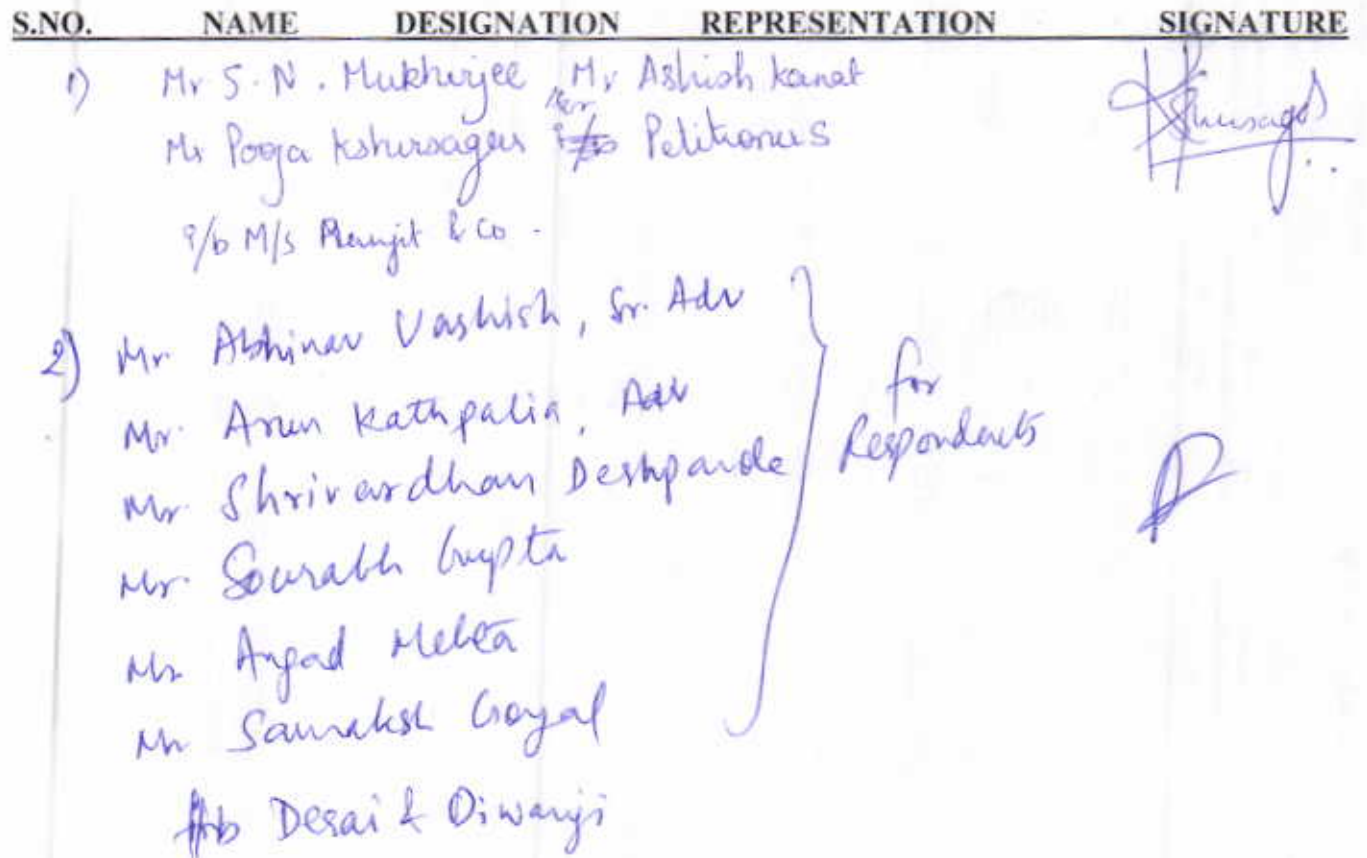 S.NO. NAME DESIGNATION REPRESENTATION SIGNATURE
1) Mr S. N. Mukherjee, Mr Ashish Kamat
Ms Pooja Kshirsagar for Petitioners
i/b M/s & Co.
Kshirsagar
2) Mr. Abhinav Vashish, Sr. Adv
Mr. Arun Kathpalia, Adv
Mr. Shrivardhan Deshpande
Mr. Sourabh Gupta
Mr Angad Mehta
Mr Samaksh Goyal
for
Respondents
i/b Desai & Diwanji